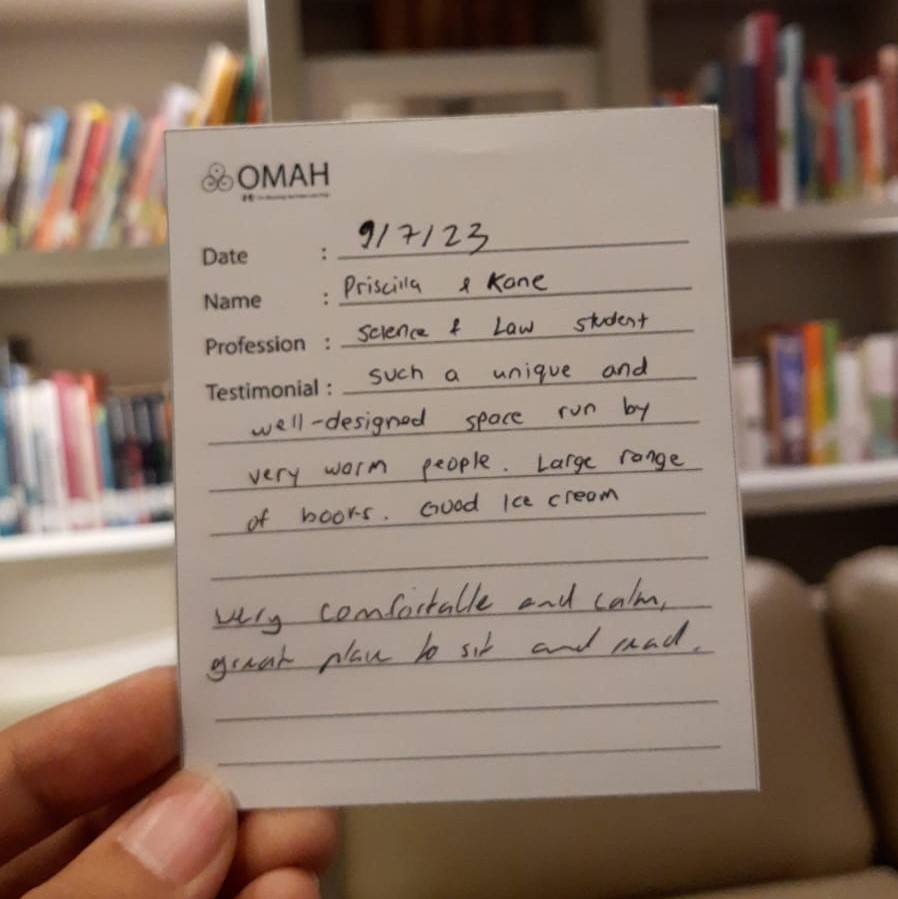 OMAH
Date : 9/7/23
Name : Priscilla & Kane
Profession : Science & Law student
Testimonial : such a unique and
well-designed space run by
very warm people. Large range
of books. Good Ice cream
very comfortable and calm,
great place to sit and read.